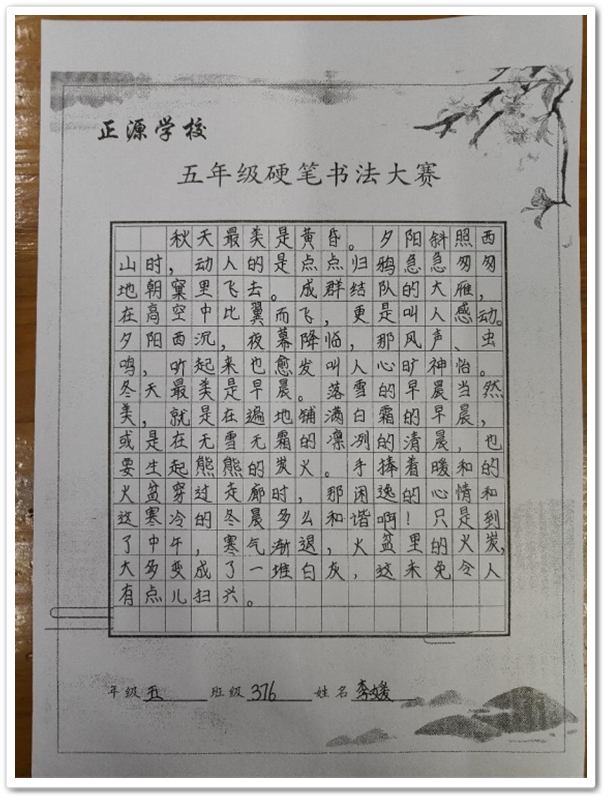 正源学校
五年级硬笔书法大赛
秋天最美是黄昏。夕阳斜照西
山时，动人的是点点归鸦急急匆匆
地朝窠里飞去。成群结队的大雁，
在高空中比翼而飞，更是叫人感动。
夕阳西沉，夜幕降临，那风声、虫
鸣，听起来也愈发叫人心旷神怡。
冬天最美是早晨。落雪的早晨当然
美，就是在遍地铺满白霜的早晨，
或是在无雪无霜的凛冽的清晨，也
要生起熊熊的炭火。手捧着暖和的
火盆穿过走廊时，那闲逸的心情和
这寒冷的冬晨多么和谐啊！只是到
了中午，寒气渐退，火盆里的火炭，
大多变成了一堆白灰，这未免令人
有点儿扫兴。
年级 五 班级 376 姓名 李媛